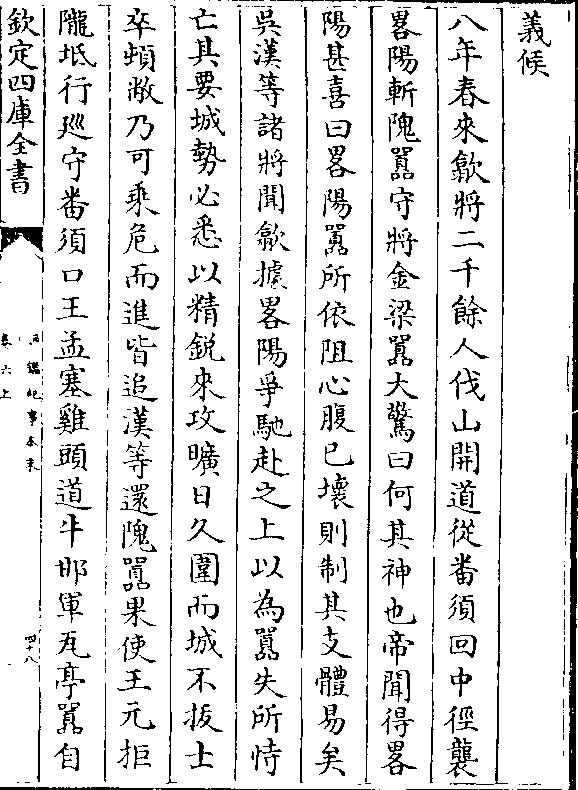 義候
八年春來歙將二千餘人伐山開道從畨須回中徑襲
畧陽斬隗囂守將金梁囂大驚曰何其神也帝聞得畧
陽甚喜曰畧陽囂所依阻心腹已壞則制其支體易矣
吳漢等諸將聞歙據畧陽爭馳赴之上以為囂失所恃
亡其要城勢必悉以精銳來攻曠日久圍而城不拔士
卒頓敝乃可乗危而進皆追漢等還隗囂果使王元拒
隴坻行廵守畨須口王孟塞雞頭道牛邯軍瓦亭囂自
欽定四庫全書
鑑紀事本末
卷六上
四十八